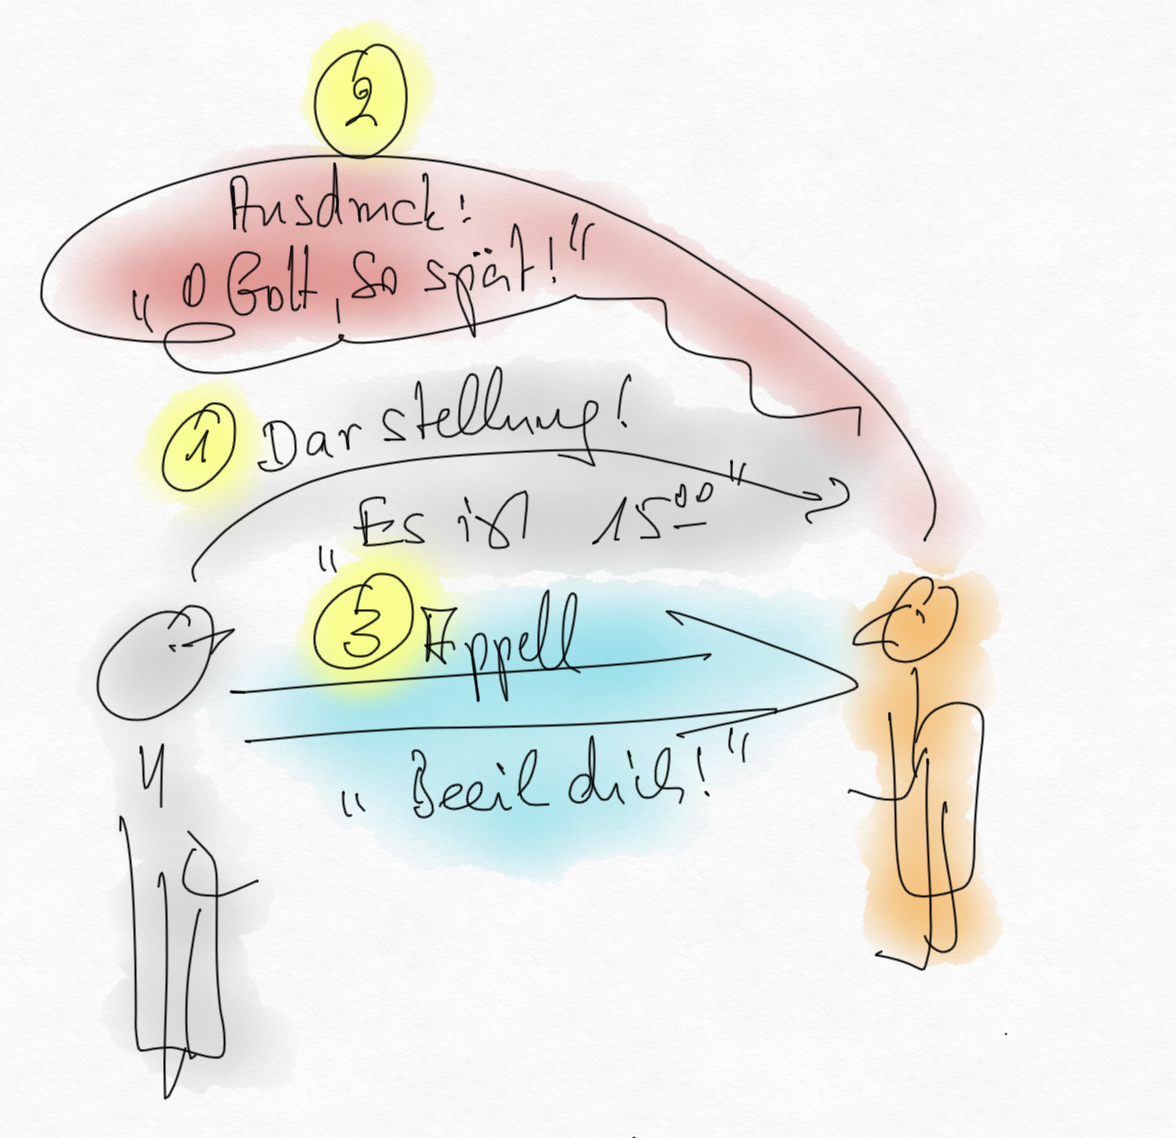 2
Ausdruck:
"O Gott, so spät!"
1 Darstellung!
"Es ist 15⁰⁰"
3 Appell
"Beeil dich!"